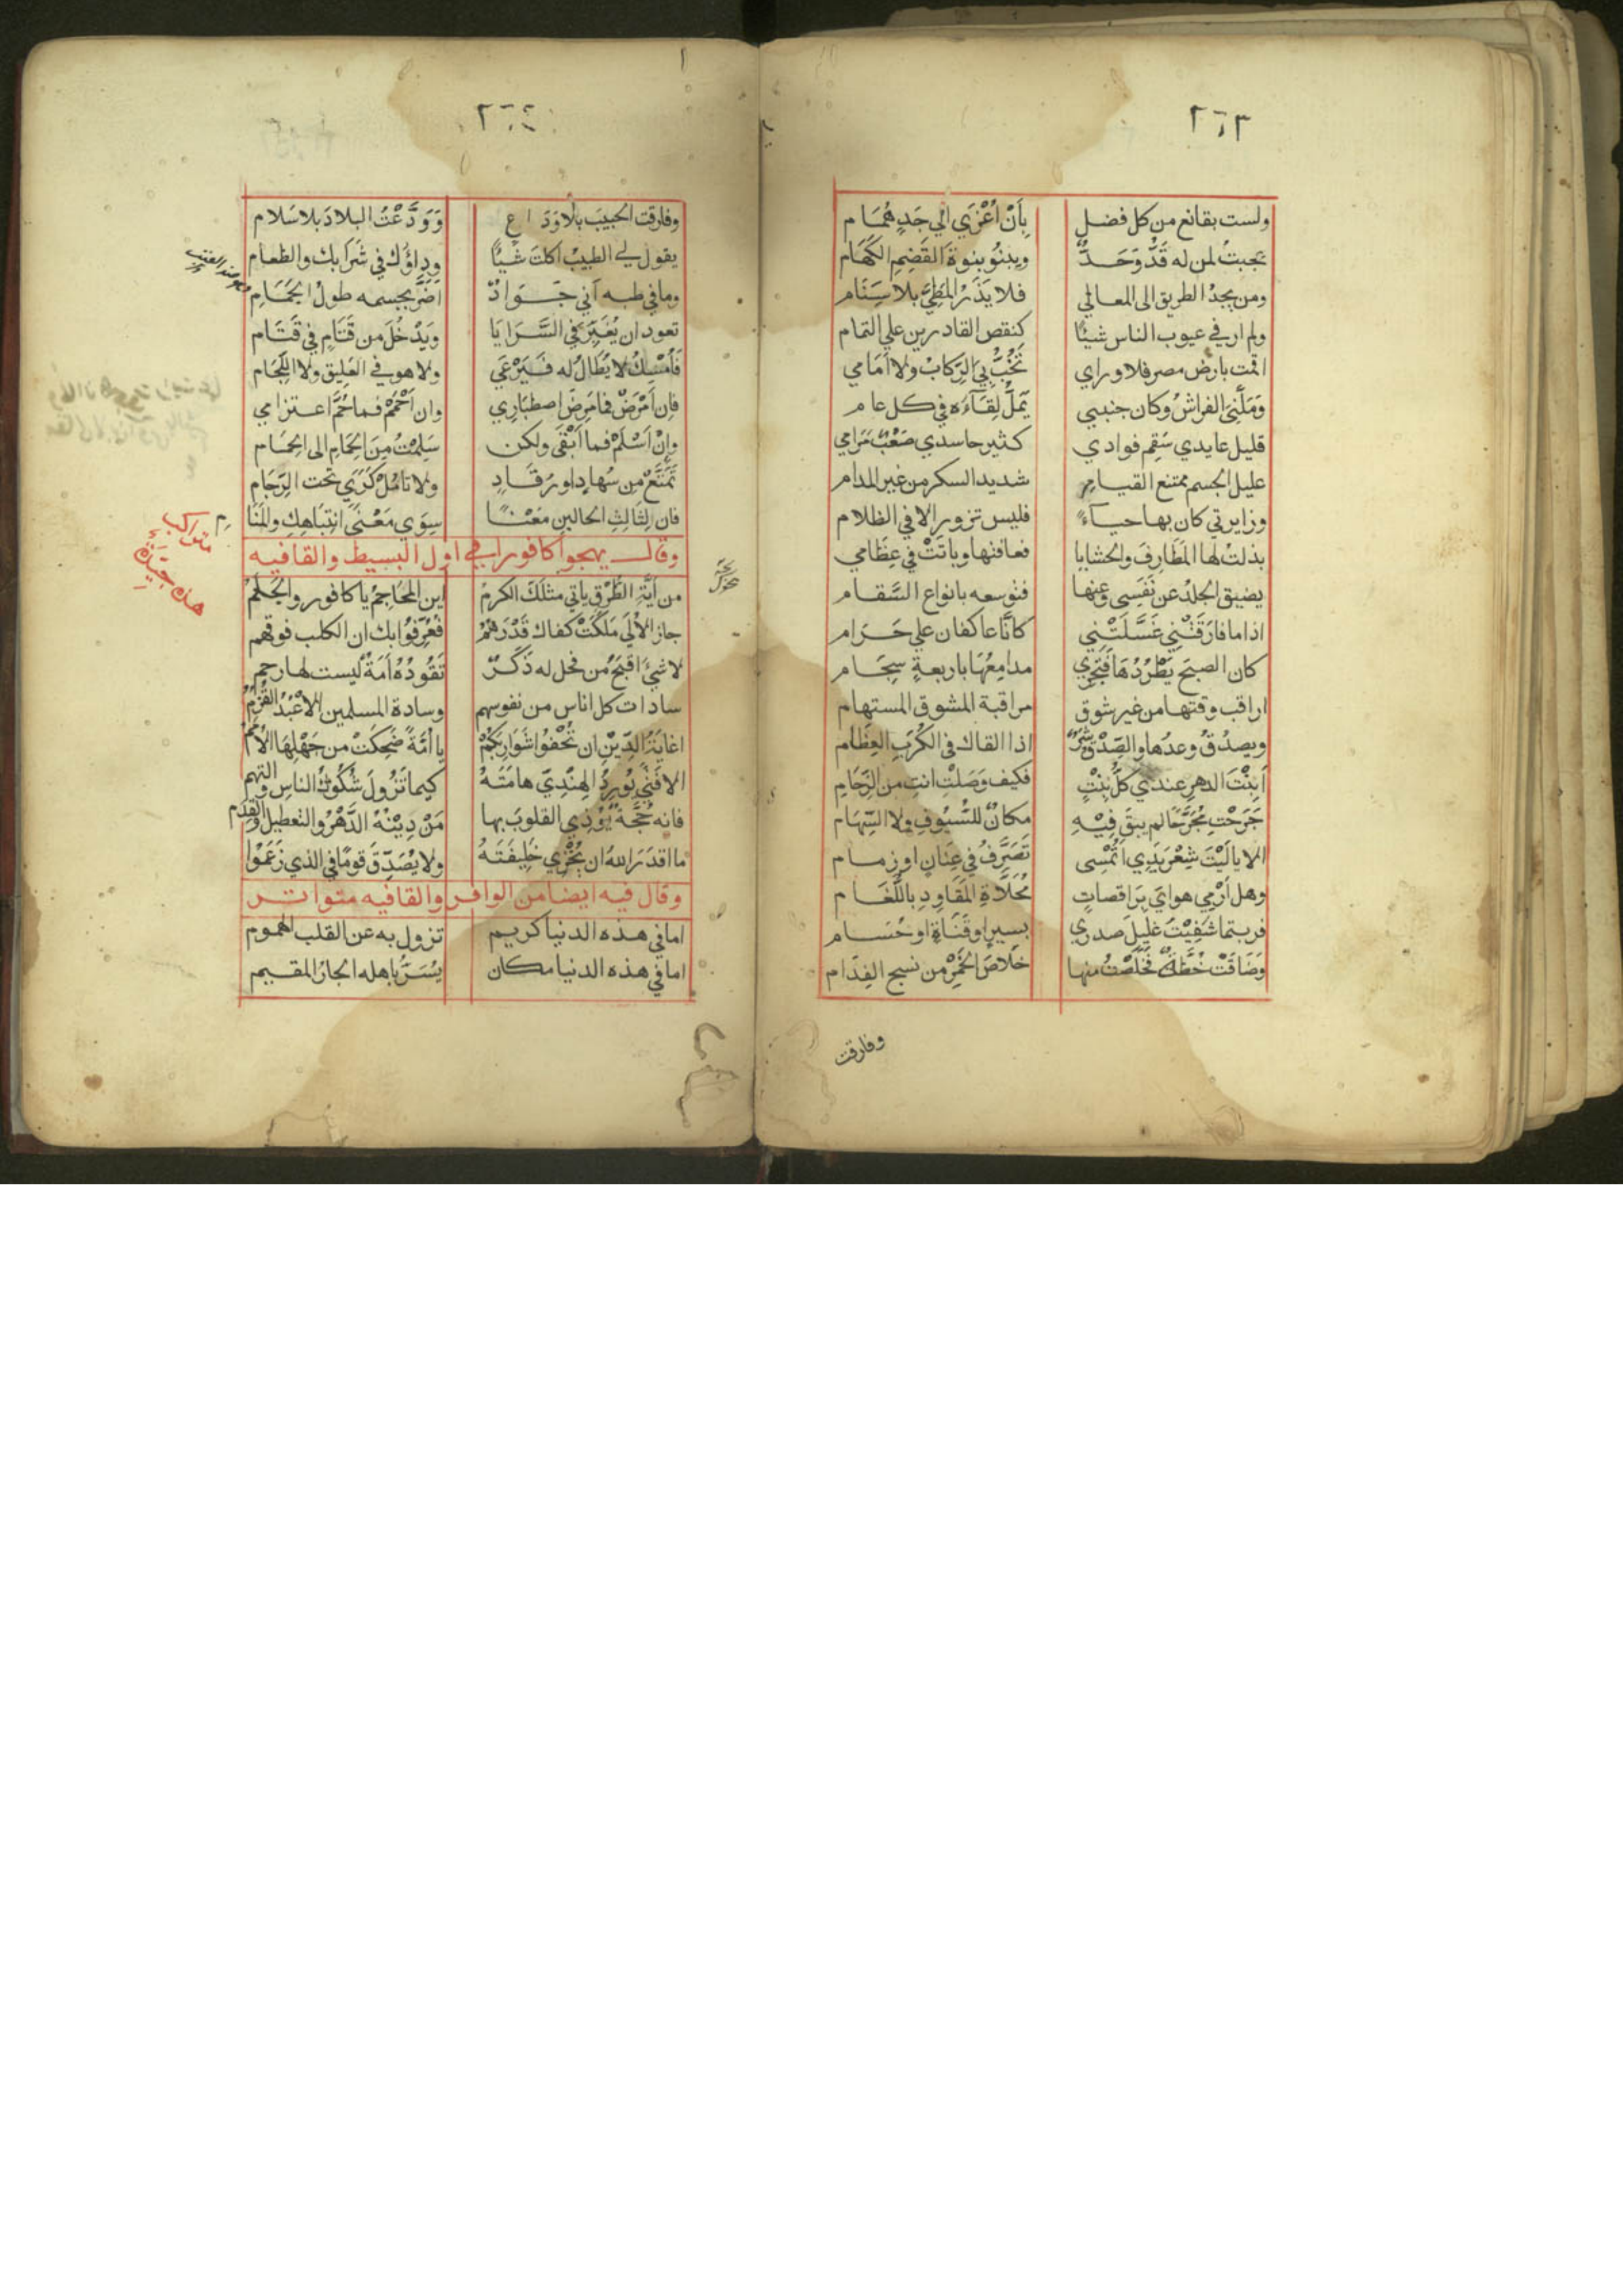 ٢٦٣
ولست بقانع من كل فضل بِأَنْ أُعْزَي الي جَدٍ هُمَام
عجبتُ لمن له قَدٌّ وَحَدٌّ وينبُو بنوة القَضِمِ الكَهَام
ومن يجدُ الطريق الى المعالي فلا يَذَرُ المَطِيَّ بلا سِنَام
ولم ار في عيوب الناس شيئًا كنقص القادرين علي التمام
اقمت بارض مصر فلا وراي تَخُبُّ بِيَ الرِّكابُ ولا أمَامي
وَمَلَّنِيَ الفراشُ وكان جنبي يَمَلُّ لِقَآءَه في كل عام
قليل عايدي سَقِم فوادي كثير حاسدي صَعْبٌ مَرَامي
عليل الجسم ممتنع القيام شديد السكر من غير المدام
وزايرتي كان بها حيآءً فليس تزور الا في الظلام
بذلتُ لها المَطَارِفَ والحشايا فعافتها وباتَتْ في عِظَامي
يضيق الجلدُ عن نَفَسِى وعنها فتوسعه بانواع السَّقام
اذا ما فارَقَتْنِي غَسَّلَتْنِي كانَّا عاكفان علي حَرَام
كان الصبحَ يَطْرُدُهَا فَتَجْرِي مدامِعُهَا باربعةٍ سِجَام
اراقب وقتها من غير شوق مراقبة المشوق المستهام
ويصدُقُ وعدُها والصِّدْقُ شَرٌّ اذا القاك في الكُرَبِ العِظَام
أَبِنْتَ الدهرِ عندي كلُّ بِنْتٍ فكيف وَصَلْتِ انتِ من الزِّحَامِ
جَرَحْتِ مُجَرَّحًا لم يبقَ فِيْهِ مكانٌ للسُّيُوفِ ولا السِّهَام
الا يا لَيْتَ شِعْرَ يَدِي اتُمْسِى تَصَرَّفُ في عِنَانٍ او زمام
وهل اَرْمِي هوايَ بِرَاقصاتٍ مُحَلَّاةِ المَقَاوِدِ باللُّغَام
فربتما شَفَيْتُ غليلَ صدري بسيرٍ او قَنَاةٍ او حُسَام
وَضَاقَتْ خُطَّةٌ فَخَلَصْتُ منها خَلاصَ الخَمْرِ من نسج الفِدَام
وفارقت
٢٦٤
وفارقت الحبيبَ بلا وَدَاعٍ وَوَدَّعْتُ البلادَ بلا سَلام
يقول لي الطبيبُ اكلتَ شيئًا وداؤك في شَرَابك والطعام
وما في طبه اَني جَوَادٌ اَضَرَّ بجسمه طولُ الجَمَامِ
تعود ان يُغَبِّرَ في السَّرَايَا وَيَدْخُلَ من قَتَامٍ في قَتَام
فَأُمْسِكُ لا يُطَالُ له فَيَرْعَي ولا هو في العَلِيق ولا اللِّجَام
فاِن اَمْرَضْ فما مَرِضَ اصطبَارِي وان اُحْمَمْ فما حُمَّ اعتزامي
وإِنْ اَسْلَمْ فما اَبْقَى ولكن سَلِمْتُ مِنَ الحِمَامِ الى الحِمَام
تَمَتَّعْ مِن سُهادٍ او رُقَادٍ ولا تامُلْ كَرًي تحت الرِّجَام
فان لِثَالِثِ الحالين مَعْنًا سِوَي مَعْنَى انتِبَاهِكِ والمَنَا
م
وقال يهجو كافورا في اول البسيط والقافيه
متراكب
هذه جيّدة
من اَيَّةِ الطُّرْقِ ياتي مثلَكَ الكرمُ اين المَحَاجمُ يا كافور والجَلَمُ
جاز الأُلَي مَلَكَتْ كفاك قَدْرَهُمُ فَعُرِّفُوا بك ان الكلب فوقهم
لا شيءَ اقبحُ من فحل له ذَكَرٌ تَقُودُهُ أَمَةٌ ليست لها رحم
سادات كل اناس من نفوسهم وسادة المسلمين الأَعْبُدُ القُزُمُ
اغايَةُ الدِّيْنِ ان تُحْفُوا شَوَارِبَكُمْ يا اُمَّةً ضَحِكَتْ من جَهْلِهَا الأُمَمُ
الا فَتًى يُورِدُ الهِنْدِيَّ هامَتَهُ كيما تَزُولَ شُكُوكُ الناسِ والتهم
فانه حُجَّةٌ يُؤْذِي القلوبَ بها مَنْ دِيْنُهُ الدَّهْرُ والتعطيلُ والقِدَم
ما اقدَرَ اللهُ ان يُخْزِي خَلِيفَتَهُ ولا يُصَدِّقَ قومًا في الذي زَعَمُوا
وقال فيه ايضا من الوافر والقافيه متواتر
اما في هذه الدنيا كريم تزول به عن القلب الهموم
اما في هذه الدنيا مكان يُسَرُّ باهله الجارُ المقيم